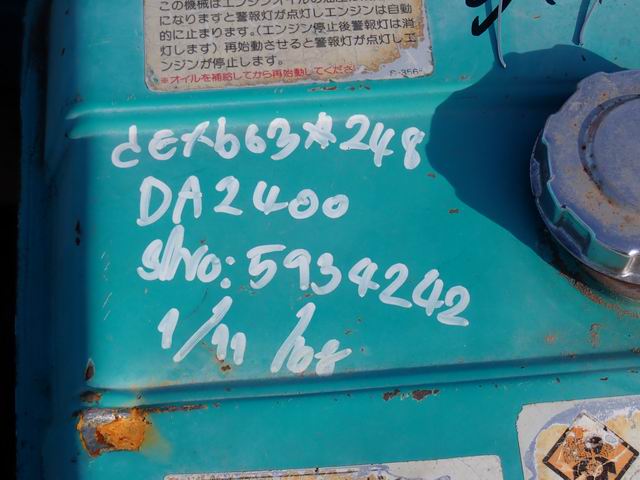 この機械はエンジンオイルの
になりますと警報灯が点灯しエンジンは自動
的に止まります。(エンジン停止後警報灯は消
灯します)再始動させると警報灯が点灯しエ
ンジンが停止します。
※オイルを補給してから再始動してください
dEX663*248
DA2400
S/No: 5934242